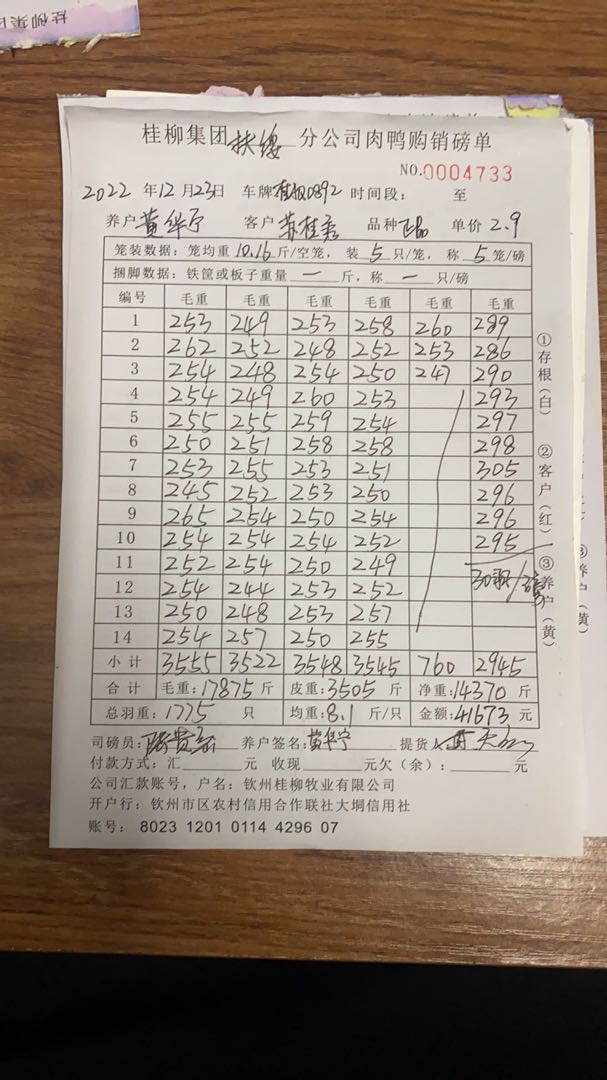 桂柳集团扶绥分公司肉鸭购销磅单
NO.0004733
2022年12月23日 车牌 时间段: 至
养户黄华宁 客户苏桂 品种正品 单价2.9
笼装数据:笼均重10.16斤/空笼,装5只/笼,称5笼/磅
捆脚数据:铁筐或板子重量一斤,称一只/磅
编号 毛重 毛重 毛重 毛重 毛重 毛重
1 253 249 253 258 260 289
2 262 252 248 252 253 286
3 254 248 254 250 247 290
4 254 249 260 253 293
5 255 255 259 254 297
6 250 251 258 258 298
7 253 255 253 251 305
8 245 252 253 250 296
9 265 254 250 254 296
10 254 254 254 252 295
11 252 254 250 249
12 254 244 253 252 30只/磅
13 250 248 253 257
14 254 257 250 255
小计 3555 3522 3548 3545 760 2945
合计 毛重:17875斤 皮重:3505斤 净重:14370斤
总羽重:1775只 均重:8.1斤/只 金额:41673元
司磅员: 养户签名:黄华宁 提货人
付款方式:汇 元 收现 元欠(余): 元
公司汇款账号,户名:钦州桂柳牧业有限公司
开户行:钦州市区农村信用合作联社大垌信用社
账号: 8023 1201 0114 4296 07
①存根(白)
②客户(红)
③养户(黄)
桂柳集团